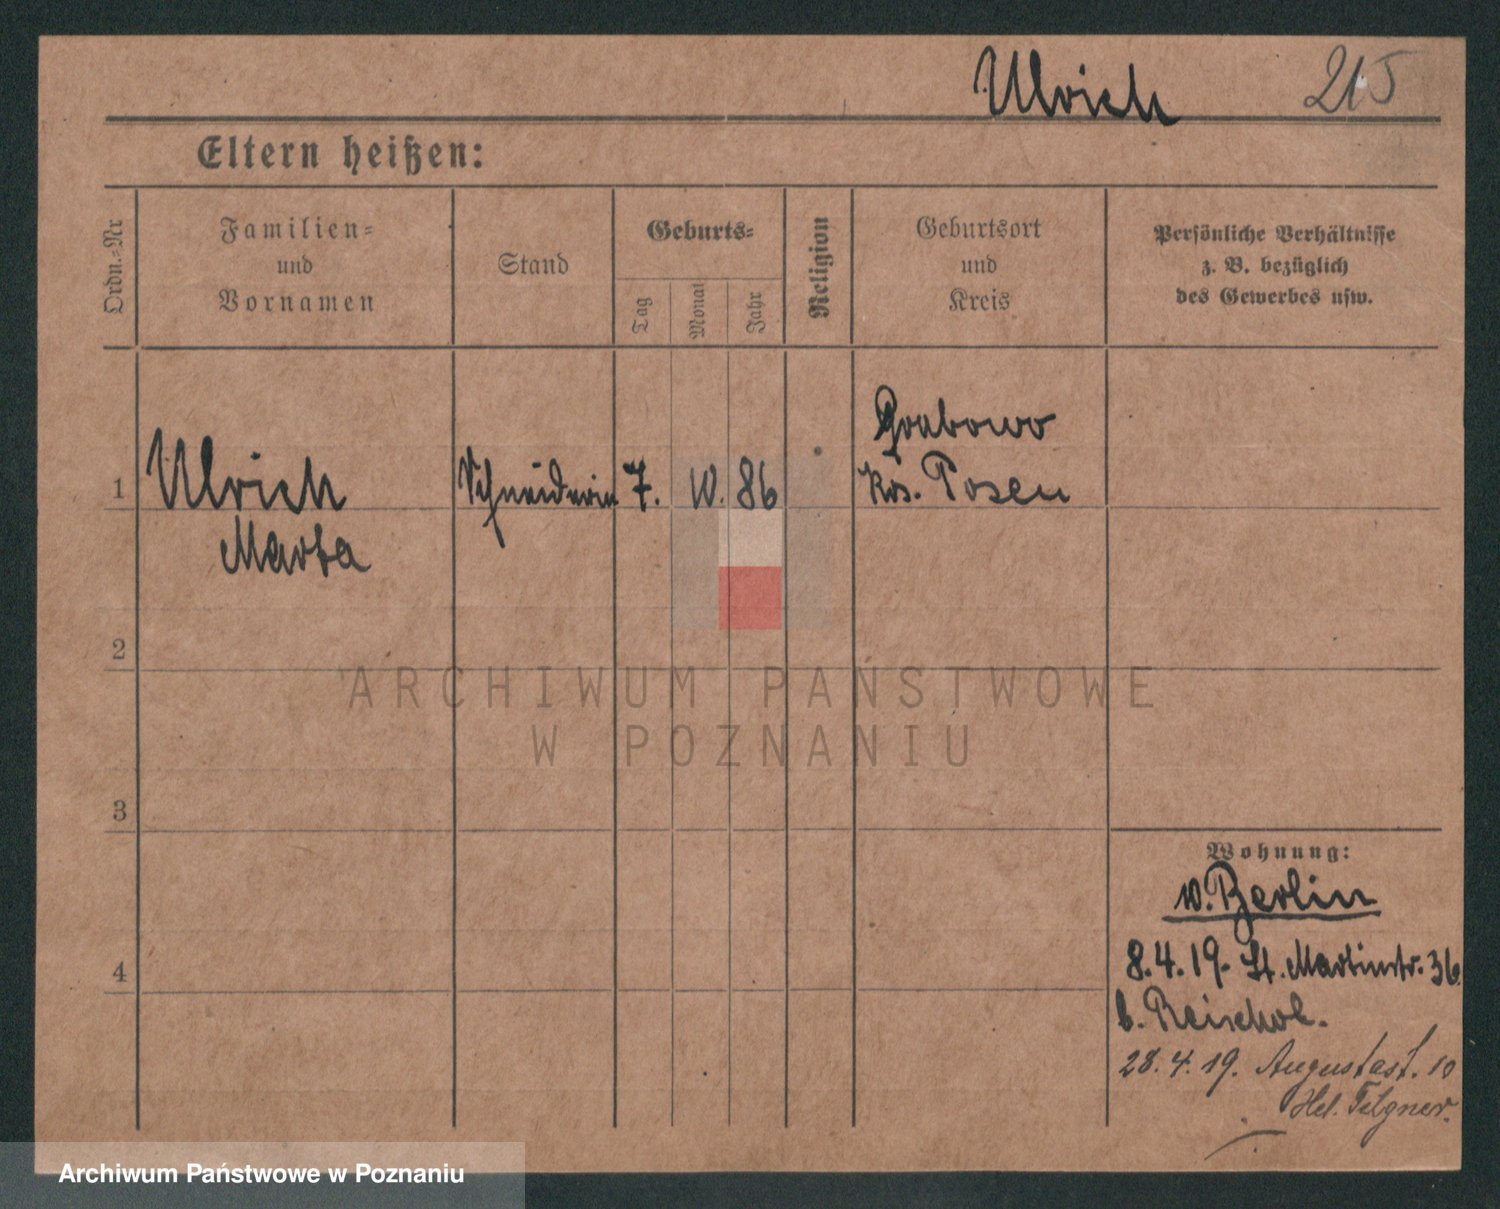 Ulrich 215
Eltern heißen:
Ordn.-Nr
Familien-
und
Vornamen
Stand
Geburts-
Tag
Monat
Jahr
Religion
Geburtsort
und
Kreis
Persönliche Verhältnisse
z. B. bezüglich
des Gewerbes usw.
Grabowo
1 Ulrich Schneiderin 7. 10. 86 Krs. Posen
Marta
2
ARCHIWUM PAŃSTWOWE
W POZNANIU
3
Wohnung:
v. Berlin
8.4.19. St. Martinstr. 36.
4
b. Reischol.
28.4.19. Augustast. 10
Hel. Filgner.
Archiwum Państwowe w Poznaniu